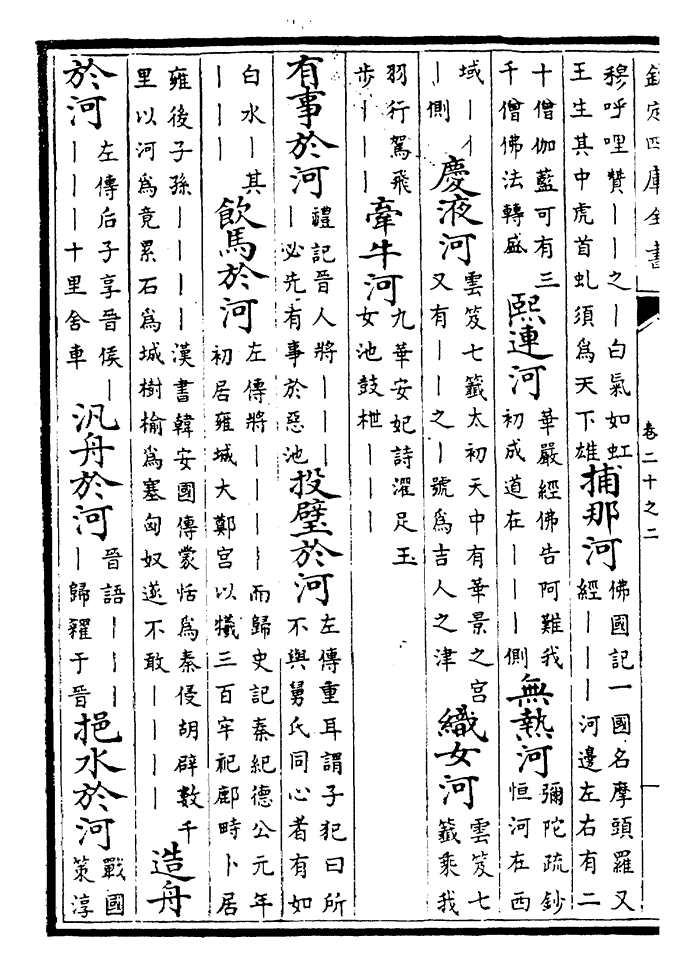 欽定四庫全書 卷二十之二
穆呼哩贊丨丨之丨白氣如虹
王生其中虎首虬須為天下雄
捕那河
佛國記一國名摩頭羅又
經丨丨丨河邊左右有二
十僧伽藍可有三
千僧佛法轉盛
熙連河
華嚴經佛告阿難我
初成道在丨丨丨側
無熱河
彌陀疏鈔
恒河在西
域丨
丨側
慶液河
雲笈七籤太初天中有華景之宮
又有丨丨之丨號為吉人之津
織女河
雲笈七
籤乘我
羽行駕飛
步丨丨丨
牽牛河
九華安妃詩濯足玉
女池鼓枻丨丨丨
有事於河
禮記晉人將丨丨丨
丨必先有事於惡池
投璧於河
左傳重耳謂子犯曰所
不與舅氏同心者有如
白水丨其
丨丨丨
飲馬於河
左傳將丨丨丨丨而歸史記秦紀德公元年
初居雍城大鄭宮以犧三百牢祀鄜畤卜居
雍後子孫丨丨丨丨漢書韓安國傳蒙恬為秦侵胡辟數千
里以河為竟累石為城樹榆為塞匈奴遂不敢丨丨丨丨
造舟
於河
左傳后子享晉侯丨
丨丨丨十里舍車
汎舟於河
晉語丨丨丨
丨歸糴于晉
挹水於河
戰國
策淳